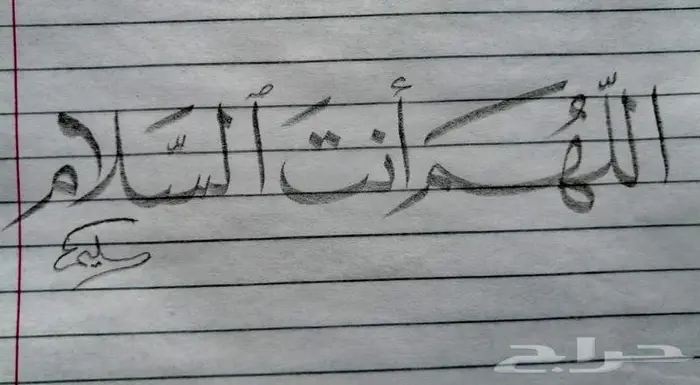 اللّهُم أَنتَ ٱلسَّلام
سليم
حراج